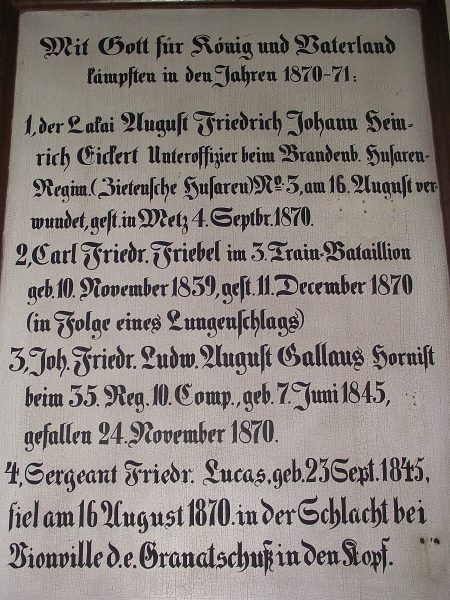 Mit Gott für König und Vaterland
kämpften in den Jahren 1870-71:
1, der Lakai August Friedrich Johann Hein-
rich Eickert Unteroffizier beim Brandenb. Husaren-
Regim. (Zietensche Husaren) No. 3, am 16. August ver-
wundet, gest. in Metz 4. Septbr. 1870.
2, Carl Friedr. Friebel im 3. Train-Bataillion
geb. 10. November 1839, gest. 11. December 1870
(in Folge eines Lungenschlags)
3, Joh. Friedr. Ludw. August Gallaus Hornist
beim 35. Reg. 10. Comp., geb. 7. Juni 1845,
gefallen 24. November 1870.
4, Sergeant Friedr. Lucas, geb. 23 Sept. 1845,
fiel am 16 August 1870. in der Schlacht bei
Vionville d. e. Granatschuß in den Kopf.